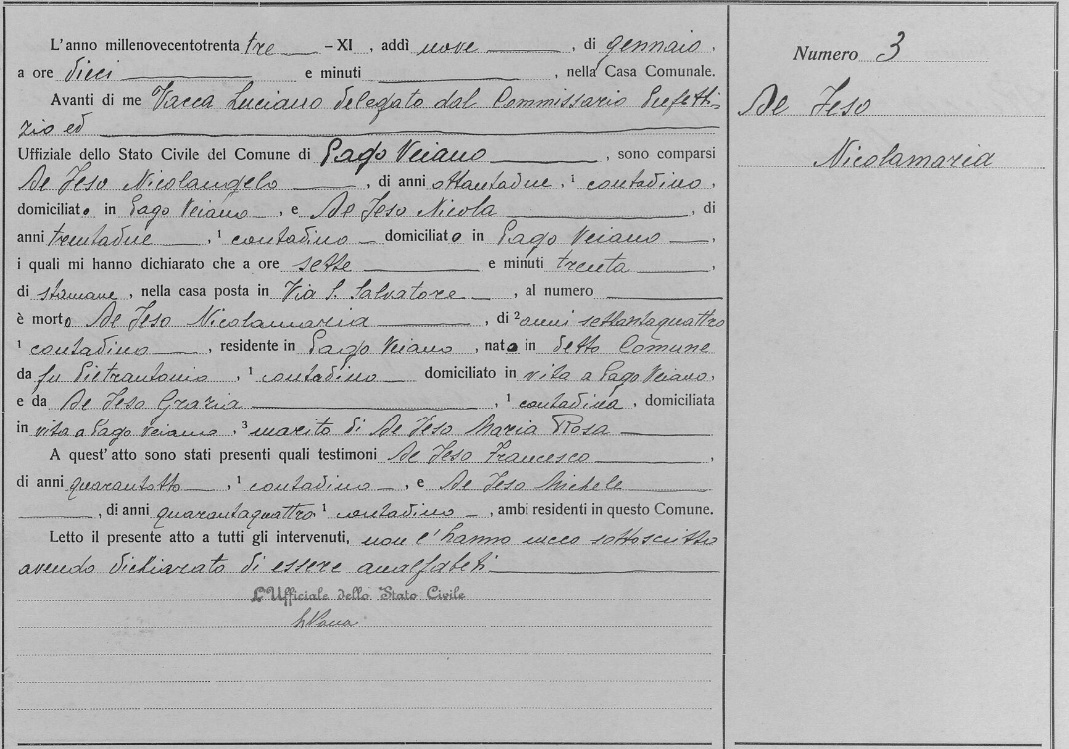 L'anno millenovecentotrenta tre – XI , addì nove , di gennaio ,
a ore dieci e minuti , nella Casa Comunale.
Avanti di me Vacca Luciano delegato dal Commissario Prefetti-
zio ed
Uffiziale dello Stato Civile del Comune di Pago Veiano , sono comparsi
De Ieso Nicolangelo , di anni ottantadue , ¹ contadino ,
domiciliato in Pago Veiano , e De Ieso Nicola , di
anni trentadue , ¹ contadino domiciliato in Pago Veiano ,
i quali mi hanno dichiarato che a ore sette e minuti trenta ,
di stamane , nella casa posta in Via S. Salvatore , al numero
è morto De Ieso Nicolamaria , di ² anni settantaquattro
¹ contadino , residente in Pago Veiano , nato in detto Comune
da fu Pietrantonio , ¹ contadino domiciliato in vita a Pago Veiano,
e da De Ieso Grazia , ¹ contadina , domiciliata
in vita a Pago Veiano , ³ marito di De Ieso Maria Rosa
A quest' atto sono stati presenti quali testimoni De Ieso Francesco ,
di anni quarantotto , ¹ contadino , e De Ieso Michele
, di anni quarantaquattro ¹ contadino , ambi residenti in questo Comune.
Letto il presente atto a tutti gli intervenuti, non l'hanno meco sottoscritto
avendo dichiarato di essere analfabeti
L'Ufficiale dello Stato Civile
LVacca
Numero 3
De Ieso
Nicolamaria